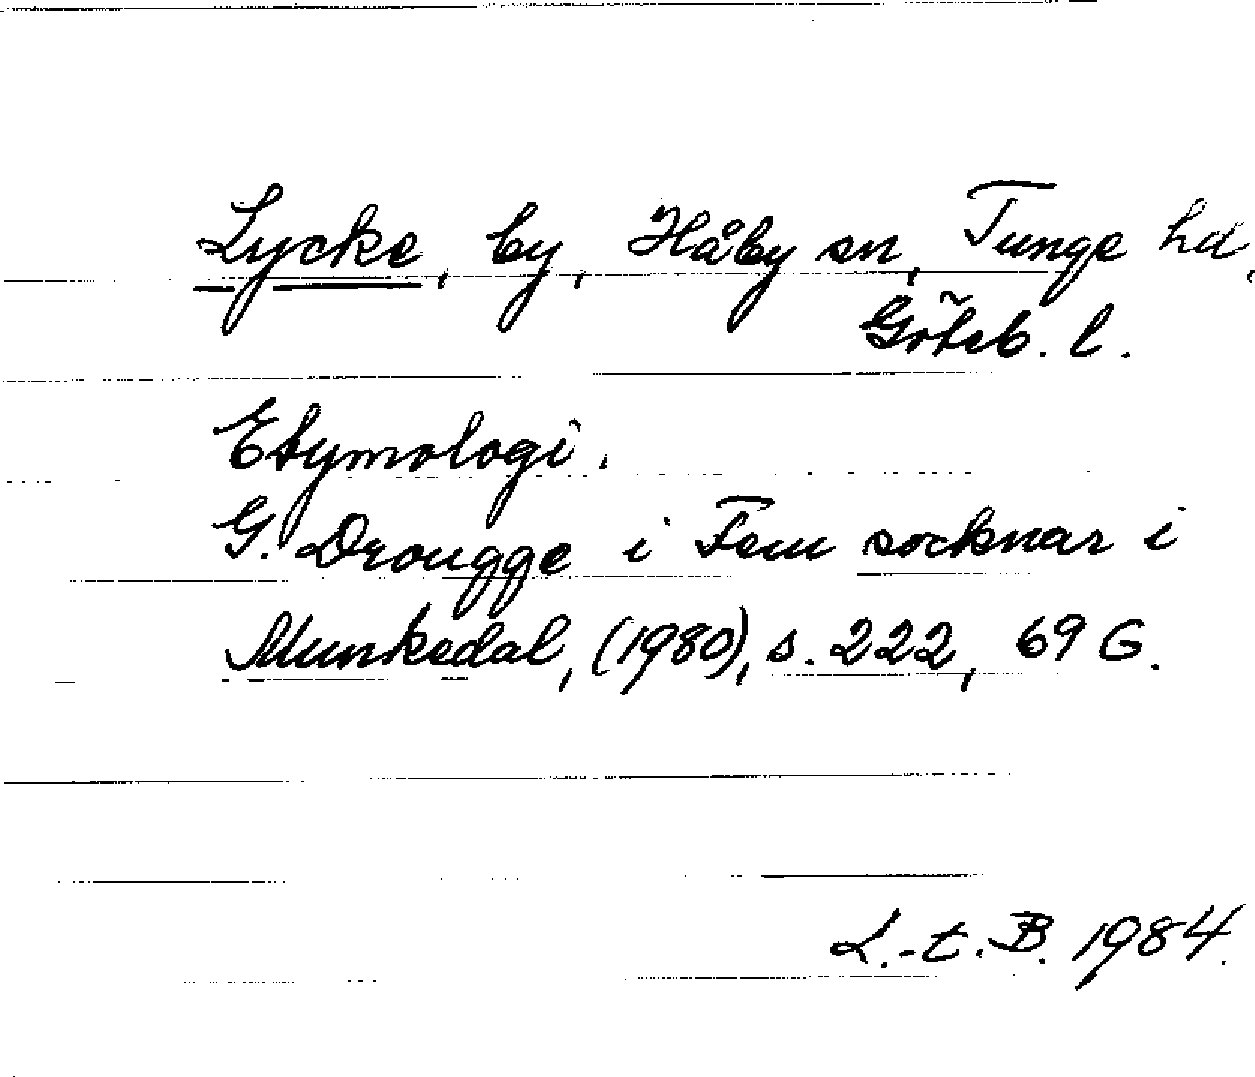 Lycke, by, Håby sn, Tunge hd,
Göteb. l.
Etymologi.
G. Drougge i Fem socknar i
Munkedal, (1980), s. 222, 69 G.
L.-t. B. 1984.